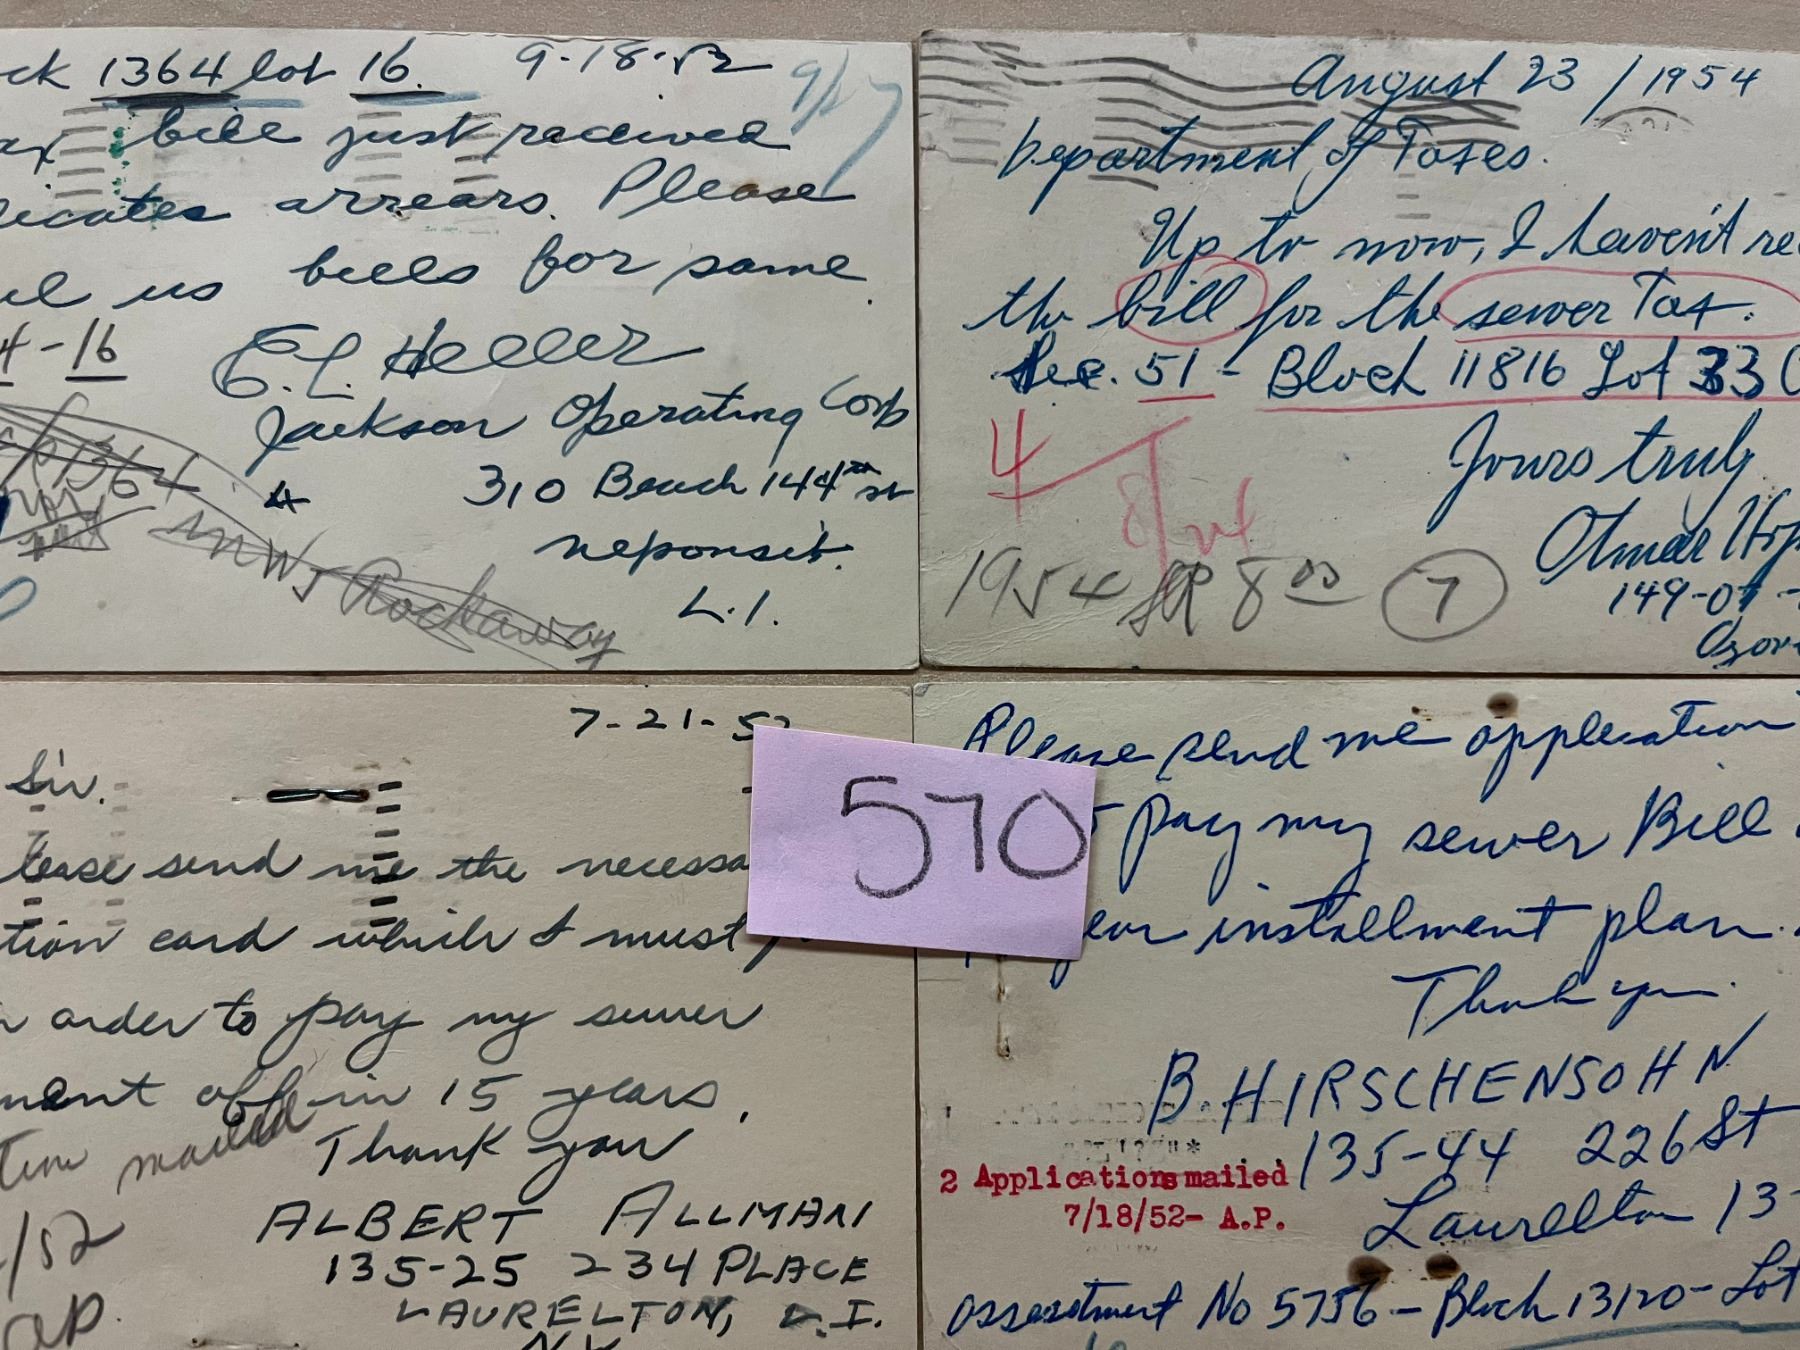 ck 1364 lot 16. 9-18-52
9/17
ax bill just received
dicates arrears. Please
il us bills for same.
4-16
E. L. Heller
Jackson Operating Corp
1364
310 Beach 144th st
neponsit.
Rockaway
L.I.
August 23 / 1954
Department of Taxes.
Up to now, I haven't re
the bill for the sewer Tax.
Sec. 51 - Block 11816 Lot 33
4
8/24
Yours truly
Otmar
1954 8 00 7
149-07 -
Ozon
7-21-52
Sir.
lease send me the necessa
tion card which I must
n order to pay my sewer
ment off in 15 years.
tion mailed
Thank you
ALBERT ALLMAN
/52
135-25 234 PLACE
AP.
LAURELTON, L.I.
N.Y.
570
Please send me application
pay my sewer Bill
year installment plan.
Thank you.
B. HIRSCHENSOHN
135-44 226 St
2 Applications mailed
7/18/52- A.P.
Laurelton 13
assessment No 5756 - Block 13120 - Lot